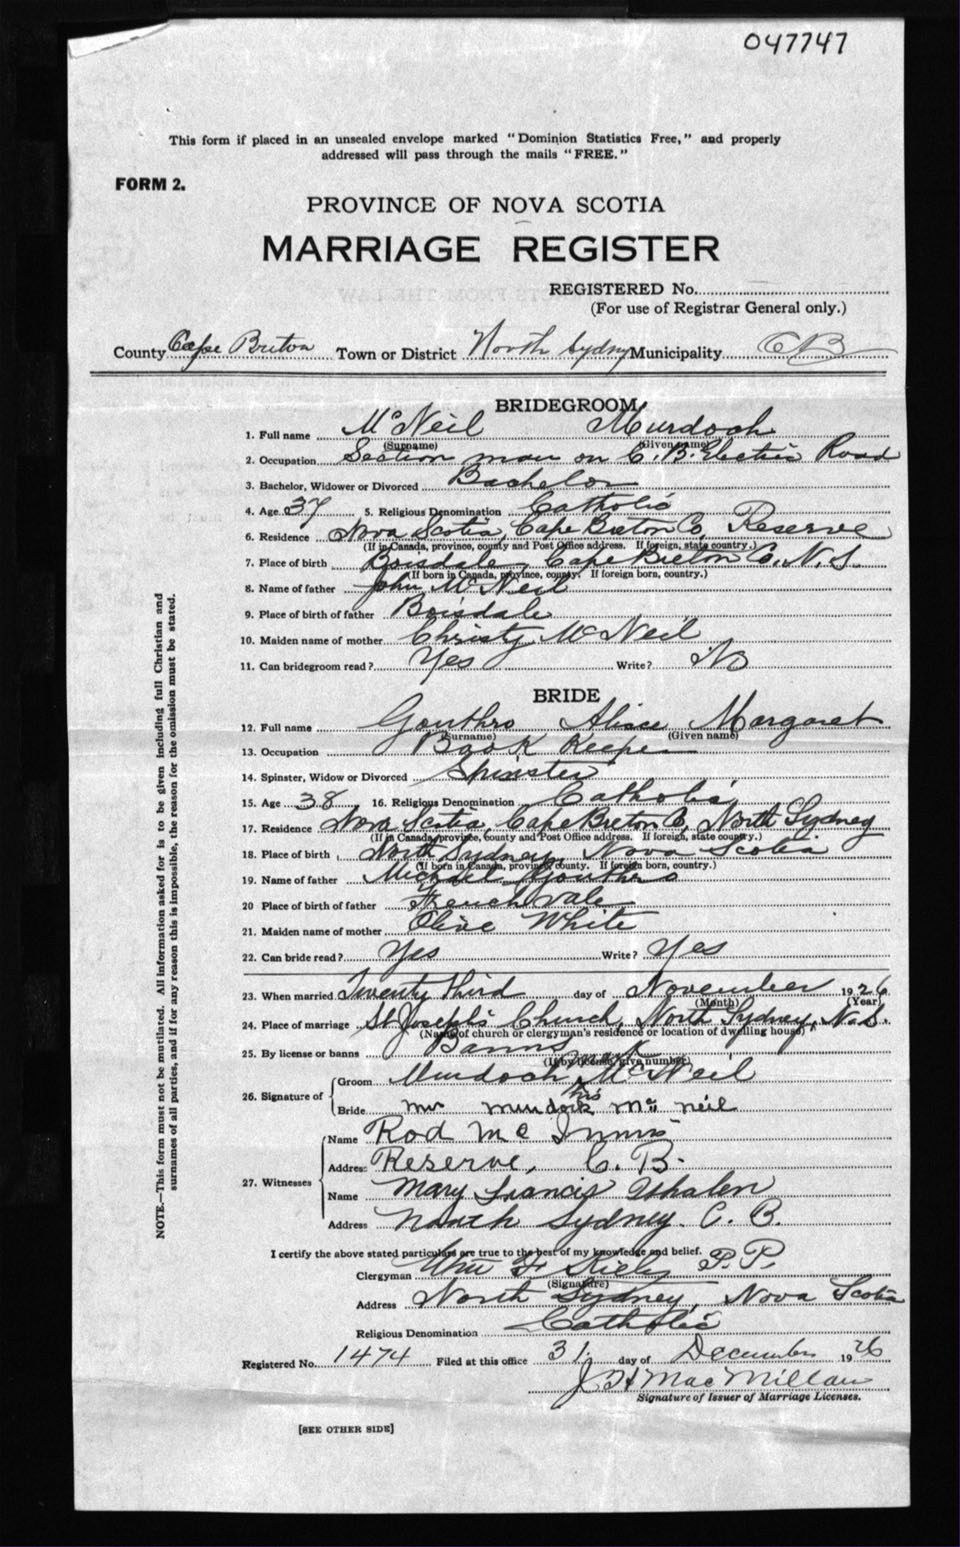 047747
This form if placed in an unsealed envelope marked "Dominion Statistics Free," and properly
addressed will pass through the mails "FREE."
FORM 2.
PROVINCE OF NOVA SCOTIA
MARRIAGE REGISTER
REGISTERED No.
(For use of Registrar General only.)
County Cape Breton Town or District North Sydney Municipality CB
BRIDEGROOM
1. Full name McNeil Murdoch
(Surname) (Given name)
2. Occupation Section man on C.B. Electric Road
3. Bachelor, Widower or Divorced Bachelor
4. Age 37 5. Religious Denomination Catholic
6. Residence Nova Scotia, Cape Breton Co, Reserve
(If in Canada, province, county and Post Office address. If foreign, state country.)
7. Place of birth Boisdale, Cape Breton Co. N.S.
(If born in Canada, province, county. If foreign born, country.)
8. Name of father John McNeil
9. Place of birth of father Boisdale
10. Maiden name of mother Christy McNeil
11. Can bridegroom read? Yes Write? No
BRIDE
12. Full name Gouthro Alice Margaret
(Surname) (Given name)
13. Occupation Book Keeper
14. Spinster, Widow or Divorced Spinster
15. Age 38 16. Religious Denomination Catholic
17. Residence Nova Scotia, Cape Breton Co, North Sydney
(If in Canada, province, county and Post Office address. If foreign, state country.)
18. Place of birth North Sydney, Nova Scotia
(If born in Canada, province, county. If foreign born, country.)
19. Name of father Michael Gouthro
20 Place of birth of father French Vale
21. Maiden name of mother Olive White
22. Can bride read? Yes Write? Yes
23. When married Twenty third day of November 1926
(Month) (Year)
24. Place of marriage St Joseph's Church, North Sydney, N.S.
(Name of church or clergyman's residence or location of dwelling house)
25. By license or banns Banns
(If by license, give number)
mark
26. Signature of Groom Murdoch McNeil
his
Bride mrs murdock Mc neil
27. Witnesses
Name Rod Mc Innis
Address Reserve, C. B.
Name Mary Francis Whalen
Address North Sydney. C. B.
I certify the above stated particulars are true to the best of my knowledge and belief.
Clergyman Wm F Kiely P.P.
(Signature)
Address North Sydney, Nova Scotia
Religious Denomination Catholic
Registered No. 1474 Filed at this office 31. day of December 1926
MacMillan
Signature of Issuer of Marriage Licenses.
[SEE OTHER SIDE]
NOTE.—This form must not be mutilated. All information asked for is to be given including full Christian and
surnames of all parties, and if for any reason this is impossible, the reason for the omission must be stated.